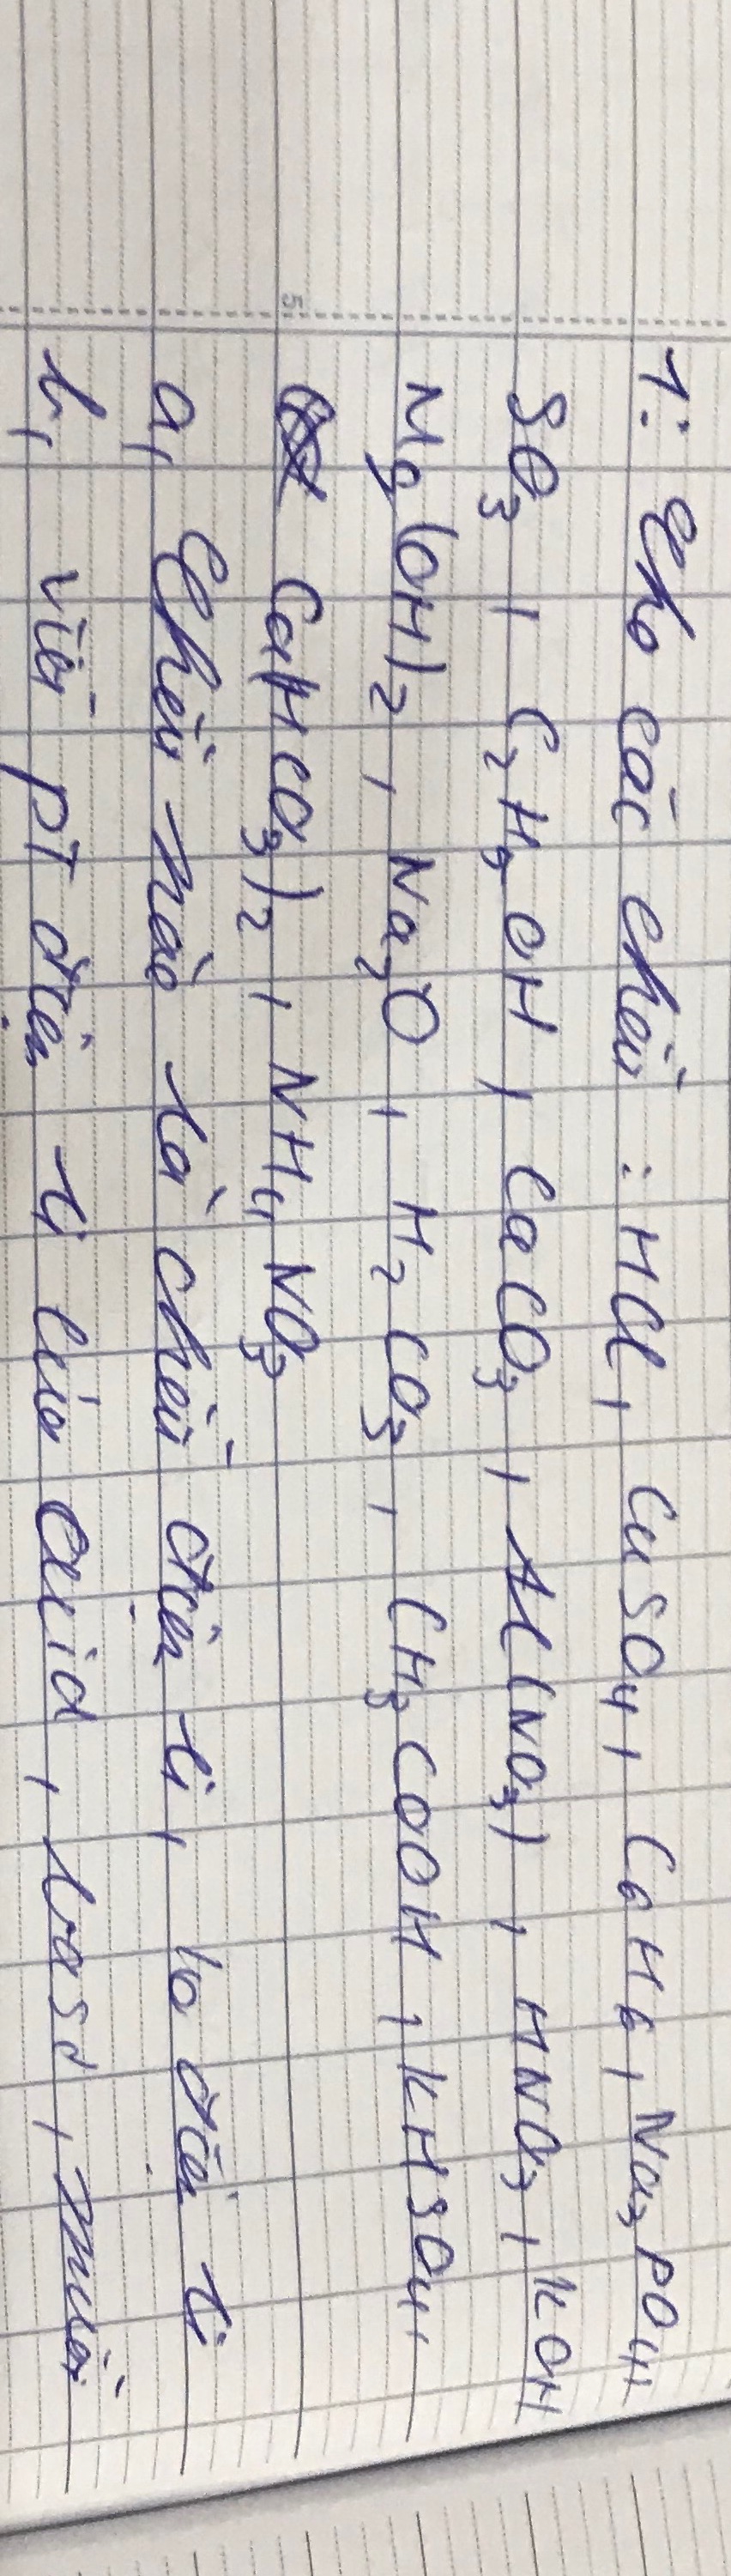 1: Cho các chất : HCl, CuSO4, C6H6, Na3PO4,
SO3, C2H5OH, CaCO3, Al(NO3), HNO3, KOH
Mg(OH)2, Na2O, H2CO3, CH3COOH, KHSO4,
Ca(HCO3)2, NH4NO3
a, Chất nào là chất điện li, ko điện li
b, viết PT điện li của acid, base, muối
5